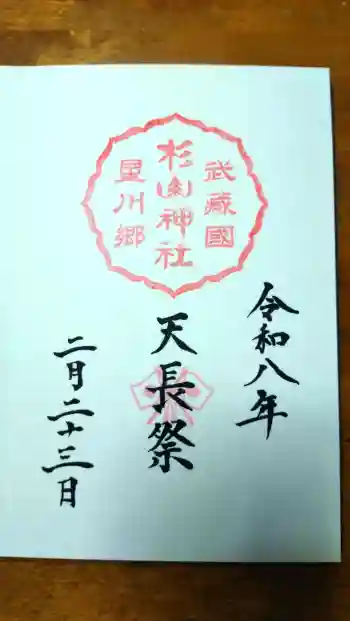 武蔵國
杉山神社
星川郷
令和八年
天長祭
二月二十三日